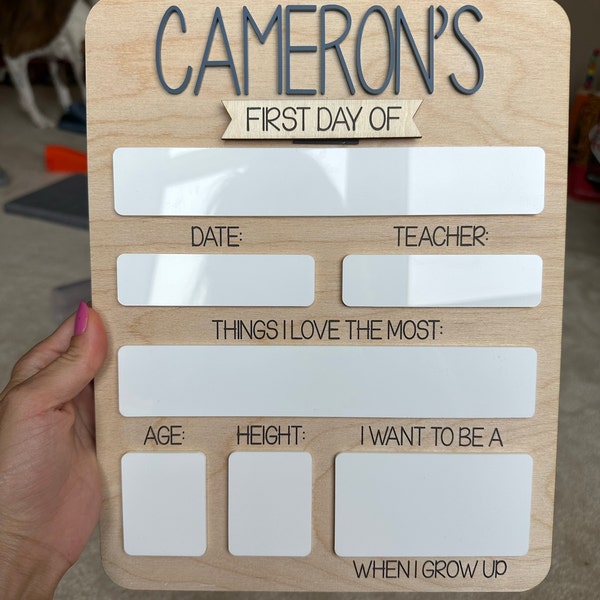 CAMERON'S
FIRST DAY OF
DATE: TEACHER:
THINGS I LOVE THE MOST:
AGE: HEIGHT: I WANT TO BE A
WHEN I GROW UP